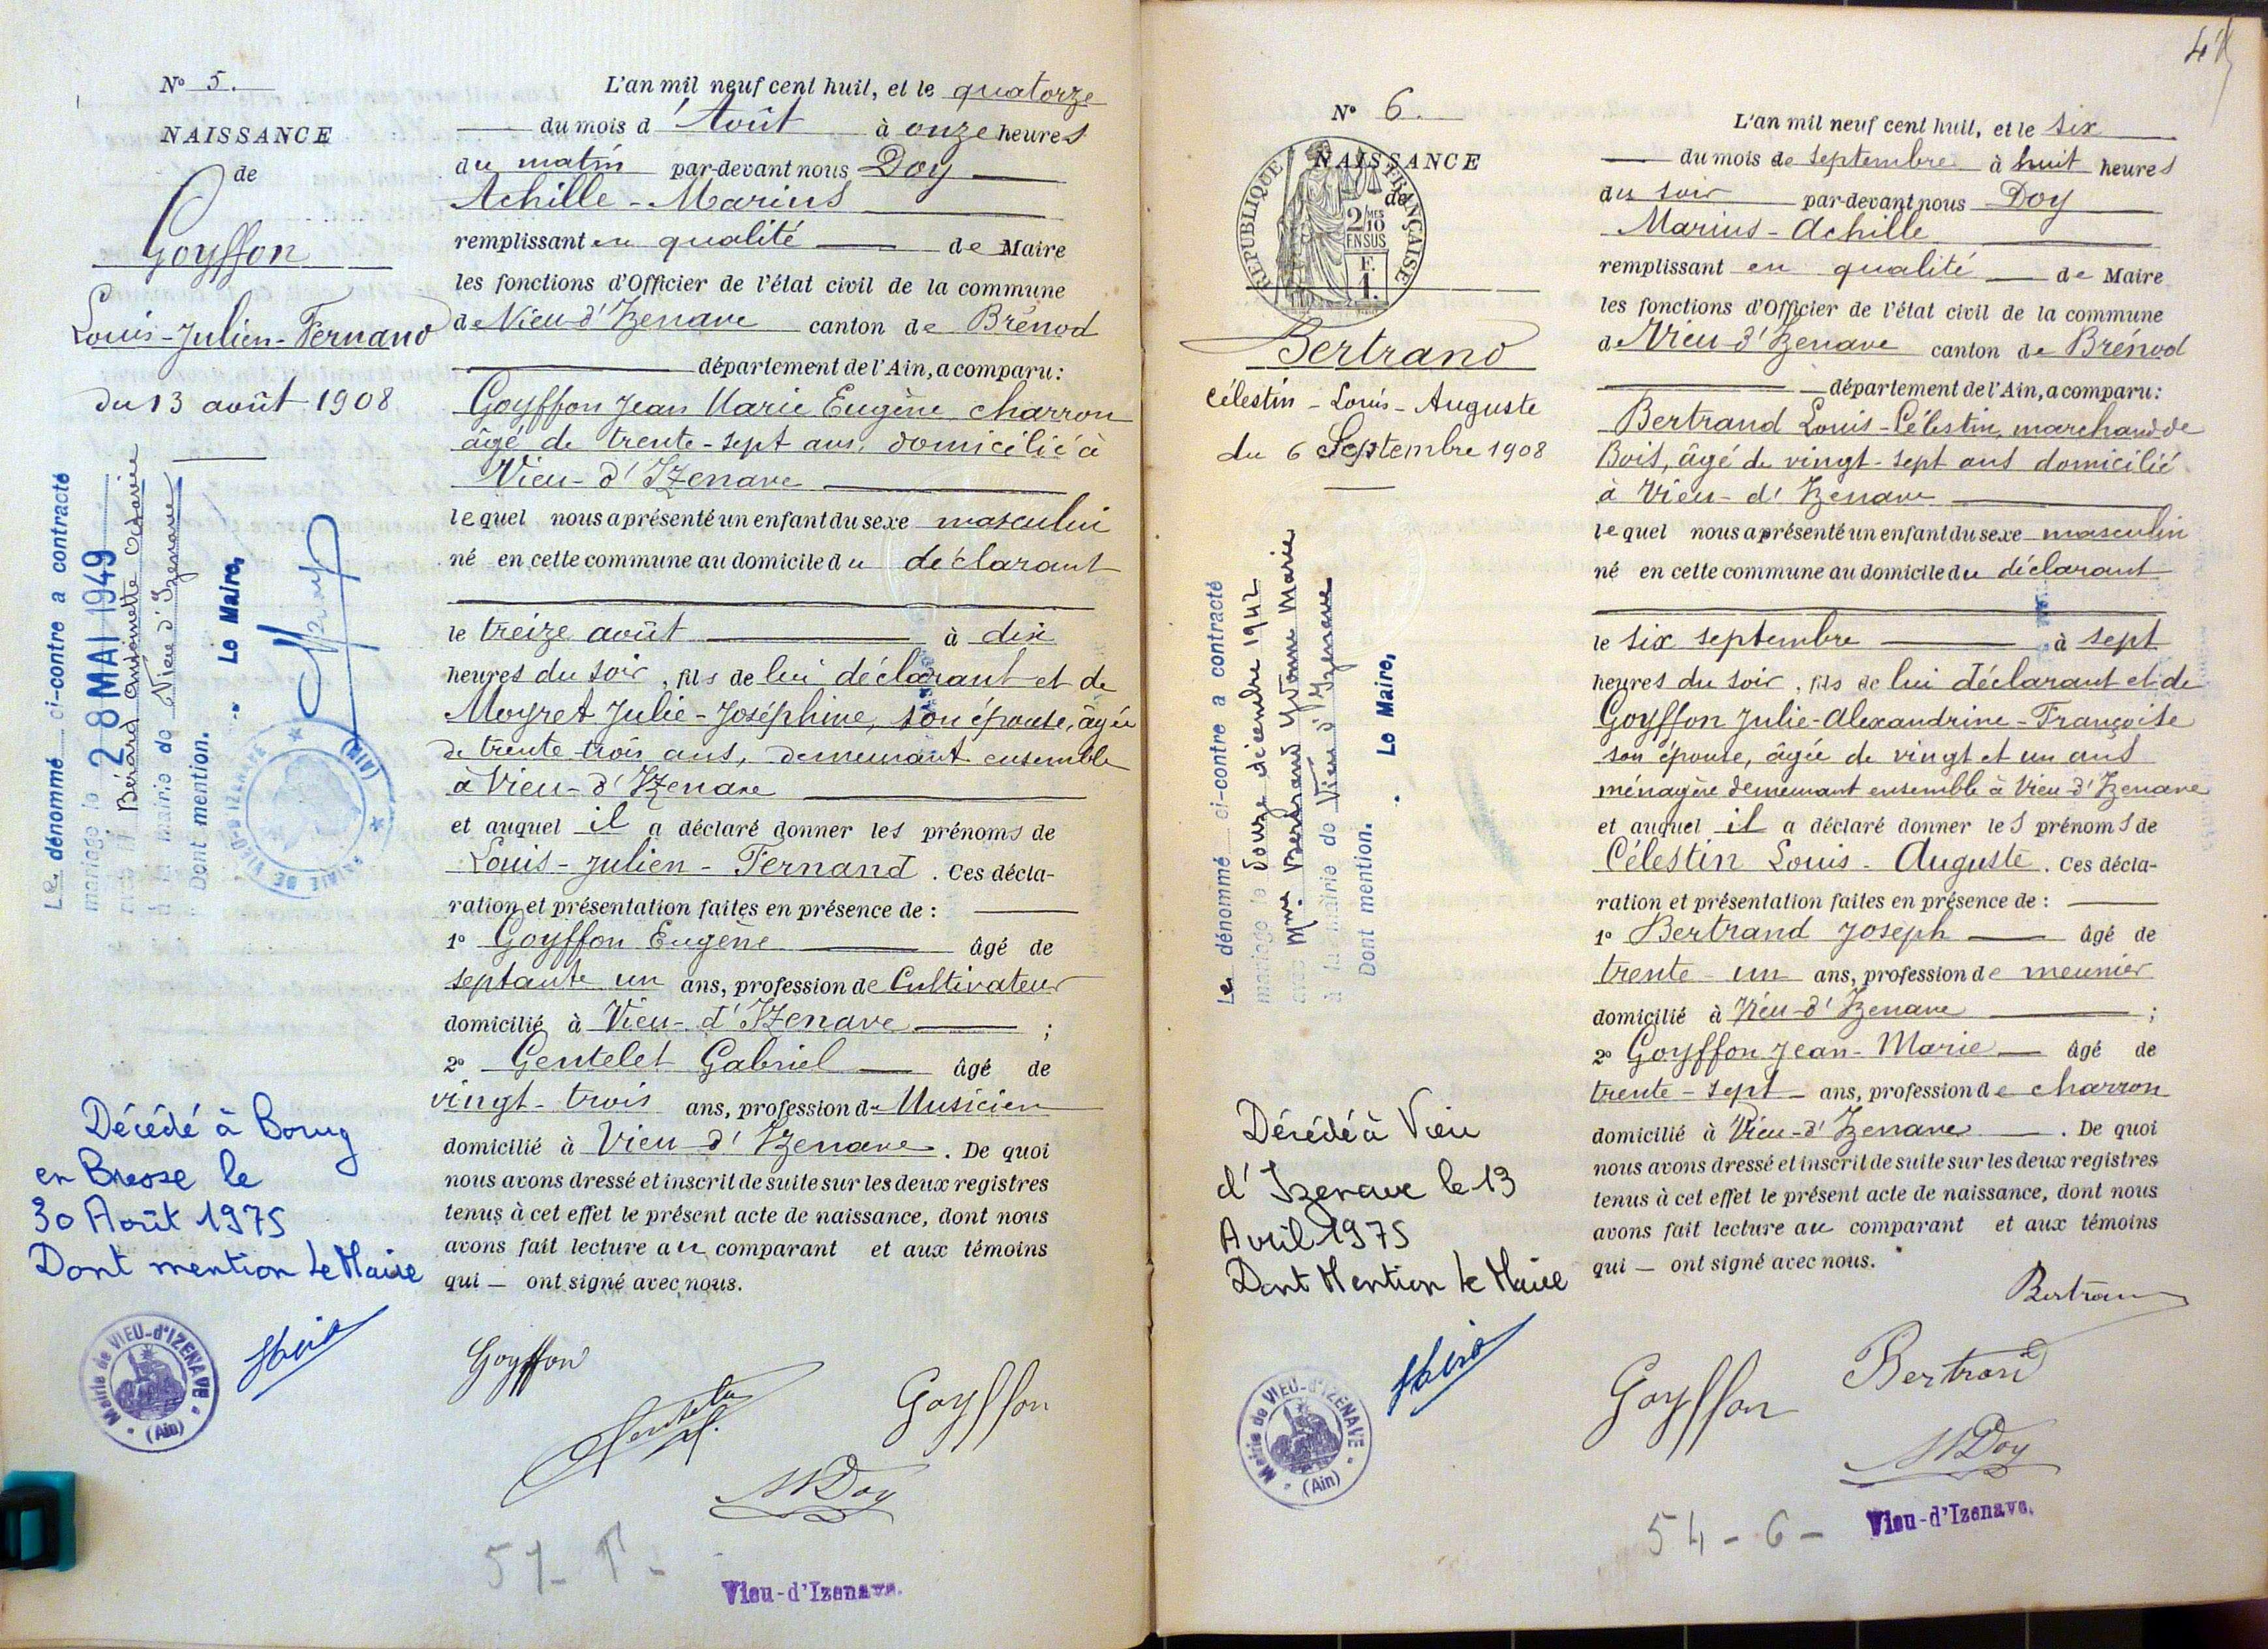 N° 5.
NAISSANCE
de
Goyffon
Louis-Julien-Fernand
du 13 août 1908
Le dénommé ci-contre a contracté
mariage le 28 MAI 1949
avec Mlle Bérard Antoinette
à la mairie de Vieu d'Izenave
Dont mention.
Le Maire,
MAIRIE DE VIEU-D'IZENAVE (AIN)
Décédé à Bourg
en Bresse le
30 Août 1975
Dont mention Le Maire
Mairie de VIEU-d'IZENAVE
(Ain)
L'an mil neuf cent huit, et le quatorze
du mois d'Août à onze heures
du matin par-devant nous Doy
Achille-Marius
remplissant en qualité de Maire
les fonctions d'Officier de l'état civil de la commune
de Vieu-d'Izenave canton de Brénod
département de l'Ain, a comparu:
Goyffon Jean Marie Eugène charron
âgé de trente-sept ans, domicilié à
Vieu-d'Izenave
lequel nous a présenté un enfant du sexe masculin
né en cette commune au domicile du déclarant
le treize août à dix
heures du soir, fils de lui déclarant et de
Moyret Julie-Joséphine, son épouse, âgée
de trente trois ans, demeurant ensemble
à Vieu-d'Izenave
et auquel il a déclaré donner les prénoms de
Louis-Julien-Fernand. Ces décla-
ration et présentation faites en présence de:
1° Goyffon Eugène âgé de
septante un ans, profession de Cultivateur
domicilié à Vieu-d'Izenave;
2° Gentelet Gabriel âgé de
vingt-trois ans, profession de Musicien
domicilié à Vieu d'Izenave. De quoi
nous avons dressé et inscrit de suite sur les deux registres
tenus à cet effet le présent acte de naissance, dont nous
avons fait lecture au comparant et aux témoins
qui — ont signé avec nous.
Goyffon
Gentelet
Goyffon
M Doy
Vieu-d'Izenave.
N° 6.
NAISSANCE
de
REPUBLIQUE FRANÇAISE
2/10MES
EN SUS
F.
1.
Bertrand
Célestin-Louis-Auguste
du 6 Septembre 1908
Le dénommé ci-contre a contracté
mariage le douze décembre 1942
avec Mme Bertrand Yvonne Marie
à la mairie de Vieu d'Izenave
Dont mention.
Le Maire,
Décédé à Vieu
d'Izenave le 13
Avril 1975
Dont Mention Le Maire
Mairie de VIEU-d'IZENAVE
(Ain)
L'an mil neuf cent huit, et le six
du mois de septembre à huit heures
du soir par-devant nous Doy
Marius-Achille
remplissant en qualité de Maire
les fonctions d'Officier de l'état civil de la commune
de Vieu-d'Izenave canton de Brénod
département de l'Ain, a comparu:
Bertrand Louis-Célestin, marchand de
Bois, âgé de vingt-sept ans domicilié
à Vieu-d'Izenave
lequel nous a présenté un enfant du sexe masculin
né en cette commune au domicile du déclarant
le six septembre à sept
heures du soir, fils de lui déclarant et de
Goyffon Julie-Alexandrine-Françoise
son épouse, âgée de vingt et un ans
ménagère demeurant ensemble à Vieu-d'Izenave
et auquel il a déclaré donner les prénoms de
Célestin Louis-Auguste. Ces décla-
ration et présentation faites en présence de:
1° Bertrand Joseph âgé de
trente-un ans, profession de meunier
domicilié à Vieu-d'Izenave;
2° Goyffon Jean-Marie âgé de
trente-sept ans, profession de charron
domicilié à Vieu-d'Izenave. De quoi
nous avons dressé et inscrit de suite sur les deux registres
tenus à cet effet le présent acte de naissance, dont nous
avons fait lecture au comparant et aux témoins
qui — ont signé avec nous.
Bertrand
Goyffon
Bertrand
M Doy
54-6-
Vieu-d'Izenave.